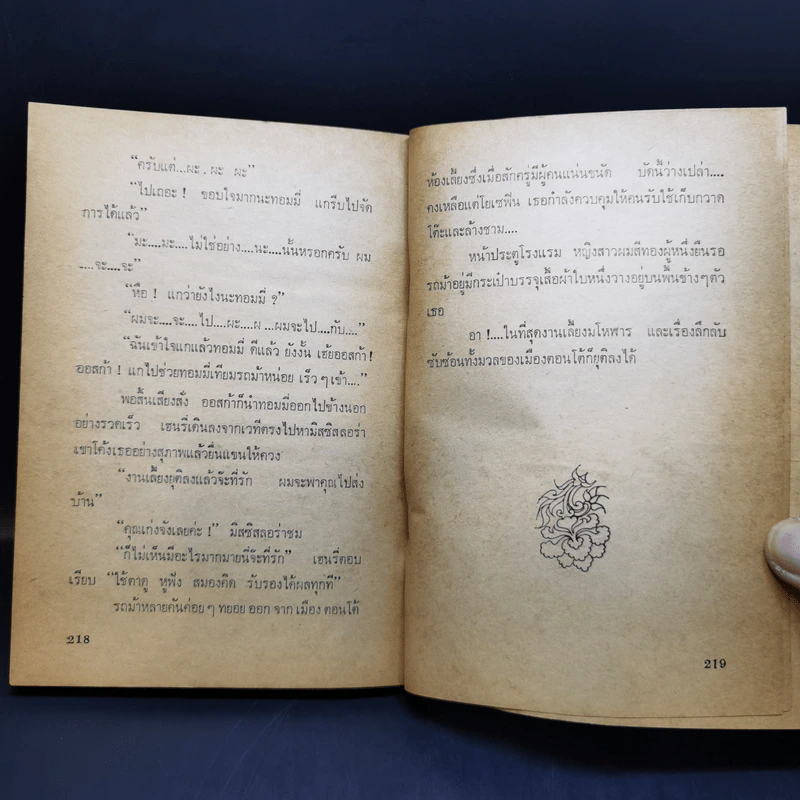 “ครับแต่...ผะ . ผะ ผะ”
“ไปเถอะ ! ขอบใจมากนะทอมมี่ แกรีบไปจัด
การได้แล้ว”
“มะ....มะ....ไม่ใช่อย่าง....นะ....นั้นหรอกครับ ผม
....จะ....จะ”
“หือ ! แกว่ายังไงนะทอมมี่ ?
“ผมจะ....จะ....ไป....ผะ....ผ ...ผมจะไป....กับ....”
“ฉันเข้าใจแกแล้วทอมมี่ ดีแล้ว ยังงั้น เฮ้ยออสก้า !
ออสก้า ! แกไปช่วยทอมมี่เทียมรถม้าหน่อย เร็ว ๆ เข้า....”
พอสิ้นเสียงสั่ง ออสก้าก็นำทอมมี่ออกไปข้างนอก
อย่างรวดเร็ว เฮนรี่เดินลงจากเวทีตรงไปหามิสซิสลอร่า
เขาโค้งเธออย่างสุภาพแล้วยื่นแขนให้ควง
“งานเลี้ยงยุติลงแล้วจ๊ะที่รัก ผมจะพาคุณไปส่ง
บ้าน”
“คุณเก่งจังเลยค่ะ !” มิสซิสลอร่าชม
“ก็ไม่เห็นมีอะไรมากมายนี่จ๊ะที่รัก” เฮนรี่ตอบ
เรียบ “ใช้ตาดู หูฟัง สมองคิด รับรองได้ผลทุกที”
รถม้าหลายคันค่อย ๆ ทยอย ออก จาก เมือง ดอนโต้
218
ห้องเลี้ยงซึ่งเมื่อสักครู่มีผู้คนแน่นขนัด บัดนี้ว่างเปล่า....
คงเหลือแต่โยเซฟิน เธอกำลังควบคุมให้คนรับใช้เก็บกวาด
โต๊ะและล้างชาม....
หน้าประตูโรงแรม หญิงสาวผมสีทองผู้หนึ่งยืนรอ
รถม้าอยู่มีกระเป๋าบรรจุเสื้อผ้าใบหนึ่งวางอยู่บนพื้นข้างๆตัว
เธอ
อา !....ในที่สุดงานเลี้ยงมโหฬาร และเรื่องลึกลับ
ซับซ้อนทั้งมวลของเมืองดอนโต้ก็ยุติลงได้
219